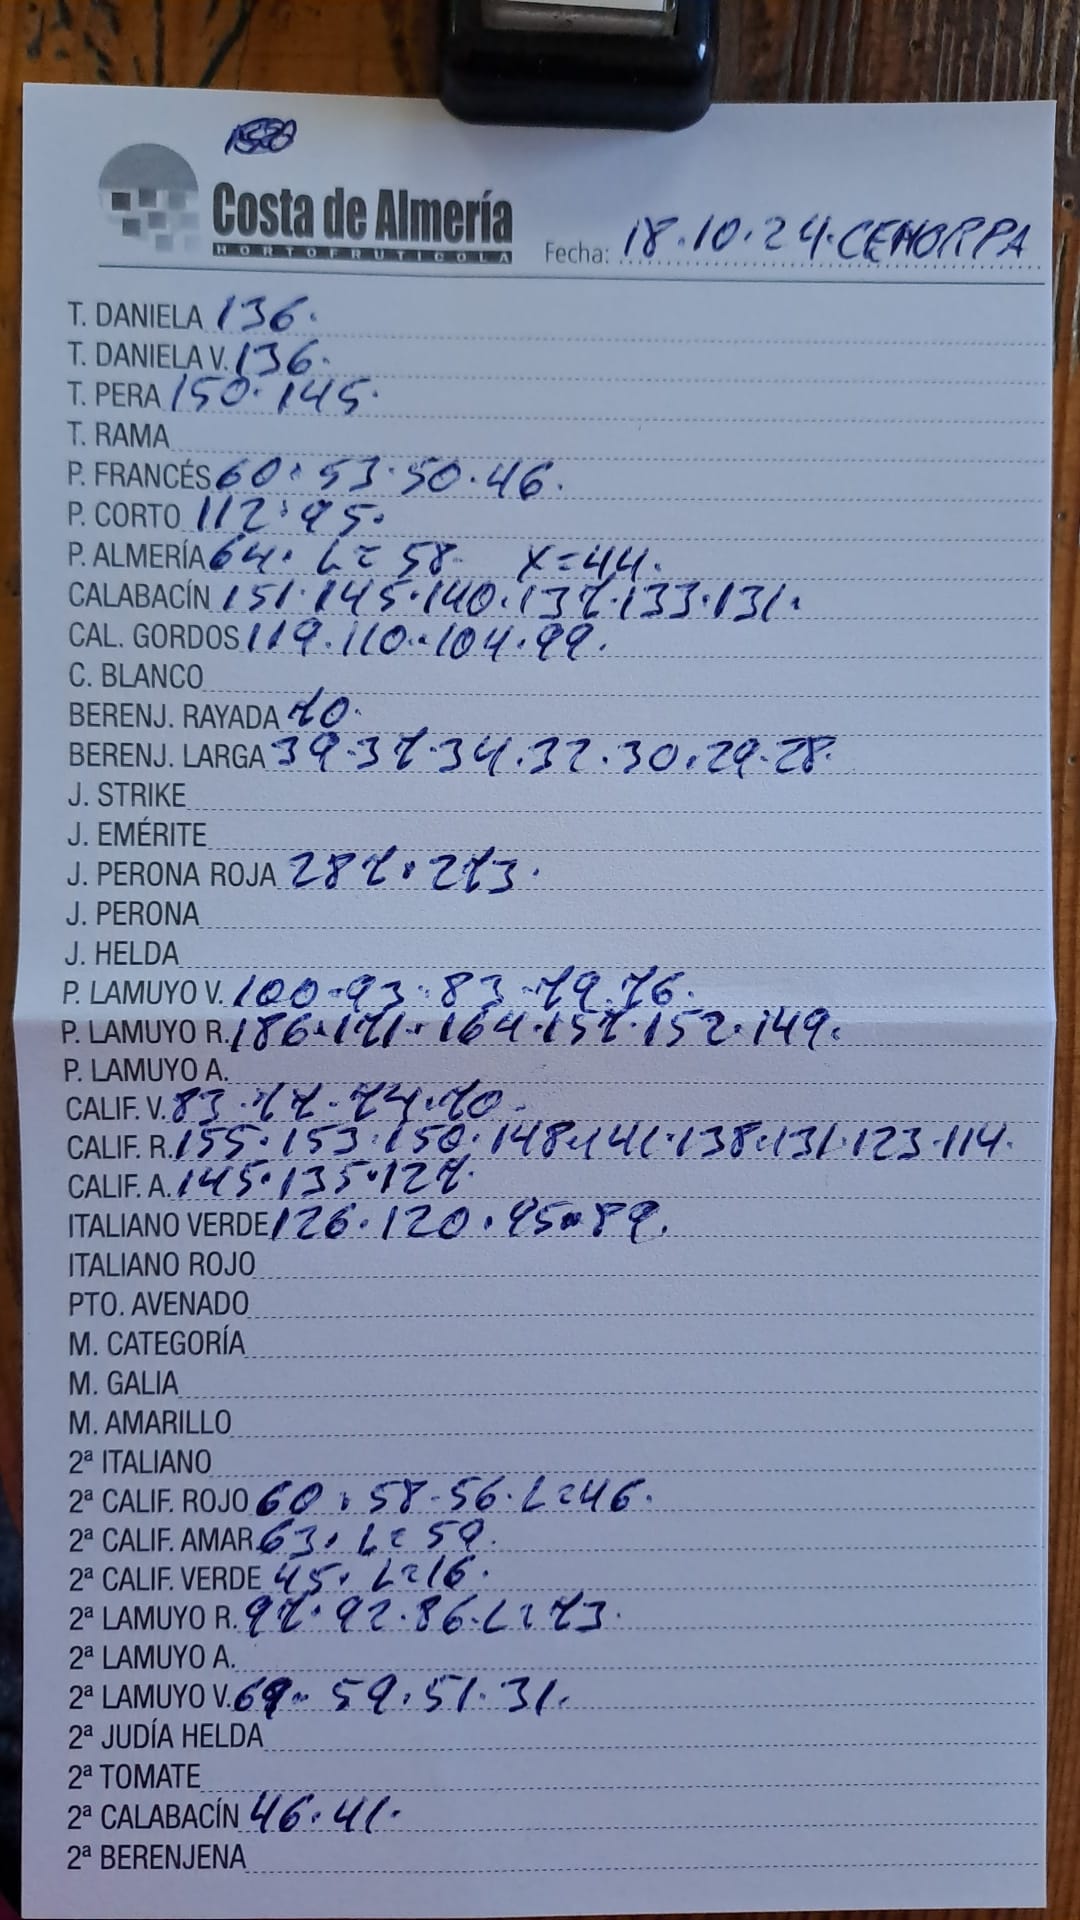 Costa de Almería
HORTOFRUTICOLA
Fecha: 18.10.24.CEHORPA
T. DANIELA 136.
T. DANIELA V. 136.
T. PERA 150. 145.
T. RAMA
P. FRANCÉS 60. 53. 50. 46.
P. CORTO 112. 95.
P. ALMERÍA 64. L=58. X=44.
CALABACÍN 151. 145. 140. 137. 133. 131.
CAL. GORDOS 119. 110. 104. 99.
C. BLANCO
BERENJ. RAYADA 70.
BERENJ. LARGA 39. 37. 34. 32. 30. 29. 28.
J. STRIKE
J. EMÉRITE
J. PERONA ROJA 287. 273.
J. PERONA
J. HELDA
P. LAMUYO V. 100. 93. 83. 79. 76.
P. LAMUYO R. 186. 171. 164. 157. 152. 149.
P. LAMUYO A.
CALIF. V. 83. 77. 74. 70.
CALIF. R. 155. 153. 150. 148. 141. 138. 131. 123. 114.
CALIF. A. 145. 135. 127.
ITALIANO VERDE 126. 120. 95. 89.
ITALIANO ROJO
PTO. AVENADO
M. CATEGORÍA
M. GALIA
M. AMARILLO
2ª ITALIANO
2ª CALIF. ROJO 60. 58. 56. L=46.
2ª CALIF. AMAR. 63. L=59.
2ª CALIF. VERDE 45. L=16.
2ª LAMUYO R. 97. 92. 86. L=73.
2ª LAMUYO A.
2ª LAMUYO V. 69. 59. 51. 31.
2ª JUDÍA HELDA
2ª TOMATE
2ª CALABACÍN 46. 41.
2ª BERENJENA